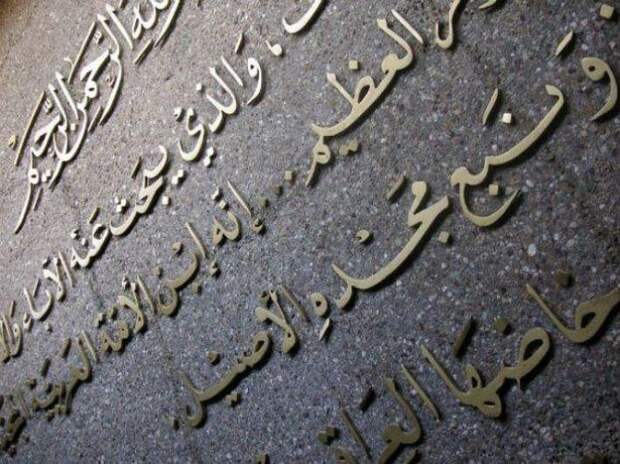 الله الرَّحْمنِ الرَّحِيْمِ
، وَالذيْ يبحَث عنْه الآبَاء
العظِيم ... إنّه إبْن الأمّة العربيّة
وَ نبَع مجْدهِ الأصيْلِ
العرَاق